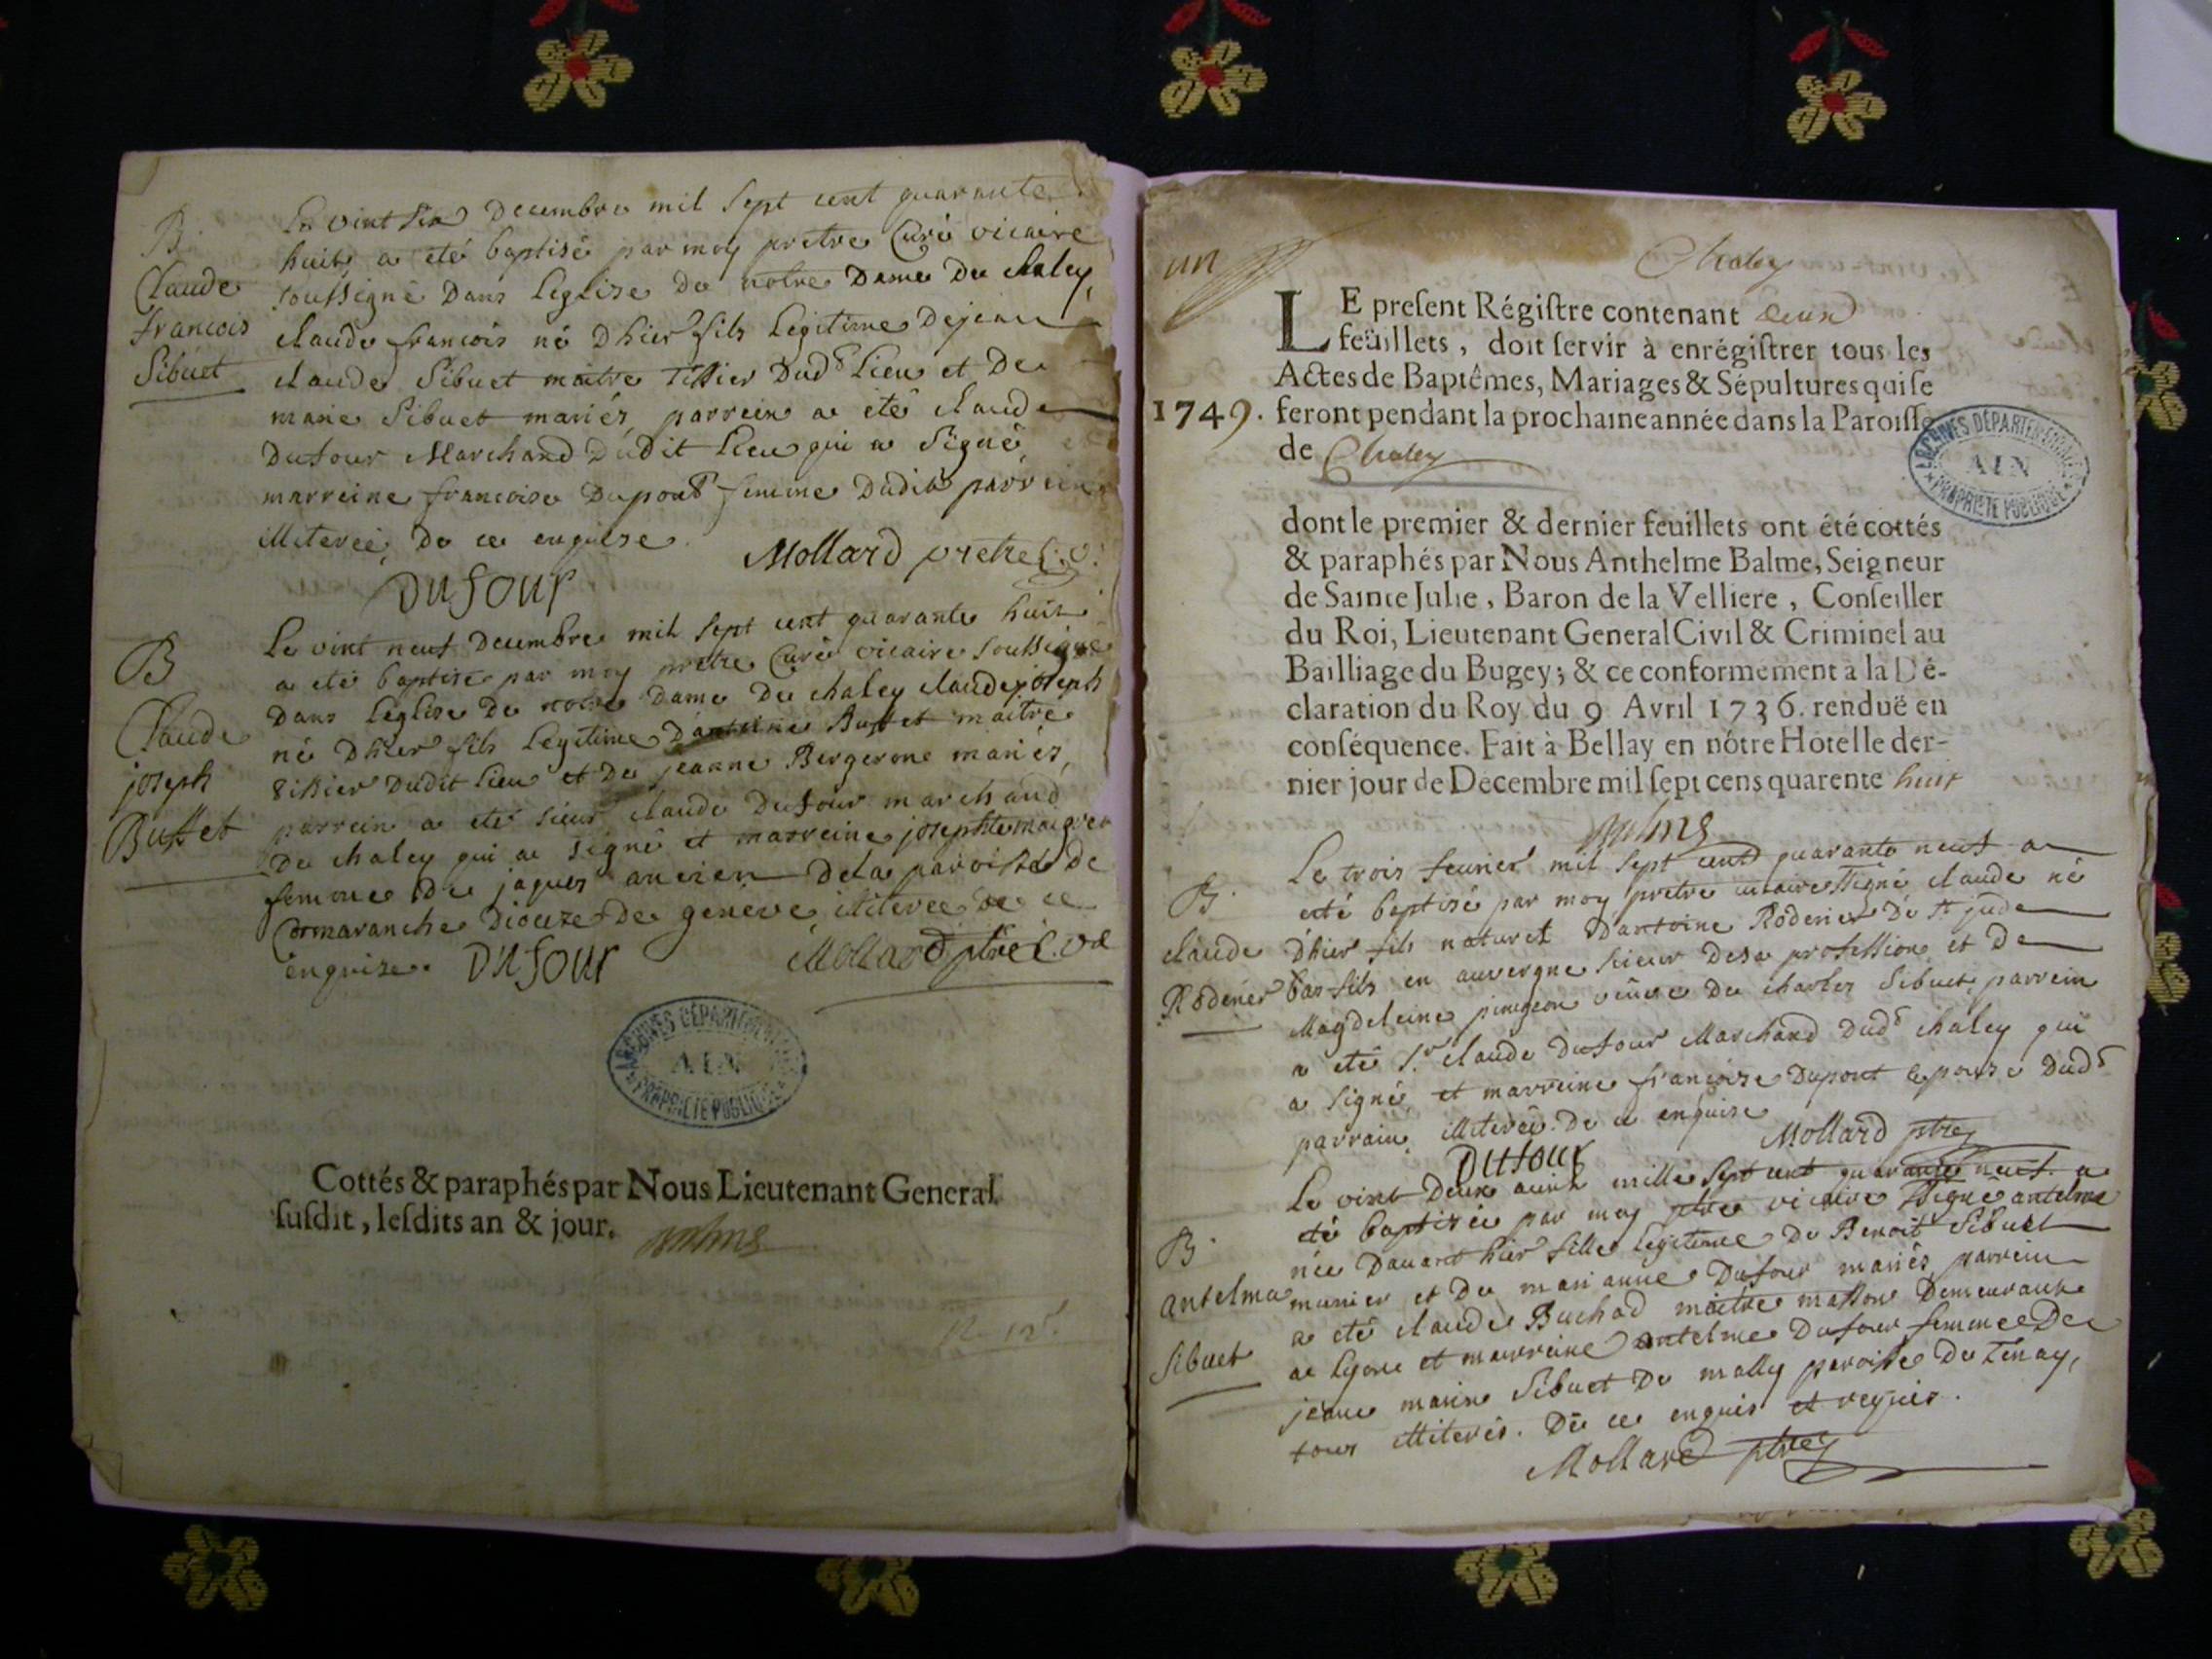 B.
Claude
francois
Sibuet
Le vint six Decembre mil sept cent quarante
huit a eté baptisé par moy pretre Curé vicaire
soussigné Dans Leglise de notre Dame De chaley,
claude francois né Dhier fils Legitime De jean
claude Sibuet maitre tissier Dud.t Lieu et De
marie Sibuet mariés, parrein a eté claude
Dufour Marchand Dudit Lieu qui a signé,
marreine francoise Dupont femme Dudit parrein
illiterée, De ce enquise.
Mollard pretre C. v.
DUfOUr
B
Claude
joseph
Buffet
Le vint neuf Decembre mil sept cent quarante huit
a eté baptisé par moy pretre Curé vicaire soussigné
Dans Léglise De notre Dame De chaley claude joseph
né Dhier fils Legitime Dantoine Buffet maitre
tissier Dudit Lieu et De jeanne Bergerone mariés,
parrein a eté sieur claude Dufour marchand
De chaley qui a signé et marreine josephte
femme De jaques ancien De la paroisse De
Cormaranche Dioceze De geneve, illiteree De ce
enquise. DUfOUr
Mollard ptre C. v.
ARCHIVES DÉPARTEMENTALES
AIN
PROPRIETE PUBLIQUE
Cottés & paraphés par Nous Lieutenant General
susdit, lesdits an & jour.
un
Chaley
LE present Régistre contenant deux
feüillets, doit servir à enrégistrer tous les
Actes de Baptêmes, Mariages & Sépultures qui se
1749. feront pendant la prochaine année dans la Paroisse
de Chaley
ARCHIVES DÉPARTEMENTALES
AIN
PROPRIETE PUBLIQUE
dont le premier & dernier feuillets ont été cottés
& paraphés par Nous Anthelme Balme, Seigneur
de Sainte Julie, Baron de la Velliere, Conseiller
du Roi, Lieutenant General Civil & Criminel au
Bailliage du Bugey; & ce conformement à la Dé-
claration du Roy du 9 Avril 1736. renduë en
conséquence. Fait à Bellay en nôtre Hotel le der-
nier jour de Décembre mil sept cens quarente huit
B.
claude
Roderier
Le trois feurier mil sept cent quarante neuf a
eté baptisé par moy pretre vicaire ssigné claude né
dhier fils naturel Dantoine Roderier De St jude
bas-fils en auvergne scieur De sa profession et De
Magdeleine pingeon veuve De charles Sibuet, parrein
a eté S.r claude Dufour Marchand Dud.t chaley qui
a signé, et marreine francoise Dupont epouse Dud.t
parrain, illiterée. De ce enquise
Mollard ptre
DUfOUr
B.
antelma
Sibuet
Le vint Deux auril mille sept cent quarante neuf a
eté baptisée par moy ptre vicaire ssigné antelme
née Dauant hier fille Legitime De Benoit Sibuet
munier et De mari anne Dufour mariés, parrein
a eté claude Buchod maitre masson Demeurant
a Lyon et marreine antelme Dufour femme De
jeane marin Sibuet De mally paroisse De Tenay,
tous illiterés. De ce enquis et requis.
Mollard ptre